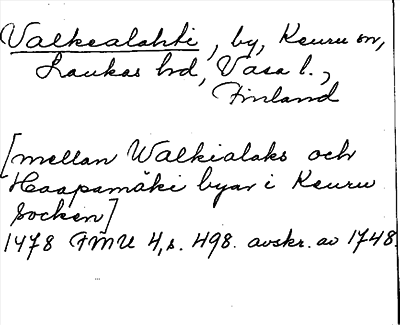 Valkealahti, by, Keuru sn,
Laukas hd, Vasa l.,
Finland
[mellan Walkialaks och
Haapamäki byar i Keuru
Socken]
1478 FMU 4, s. 498. avskr. av 1748.